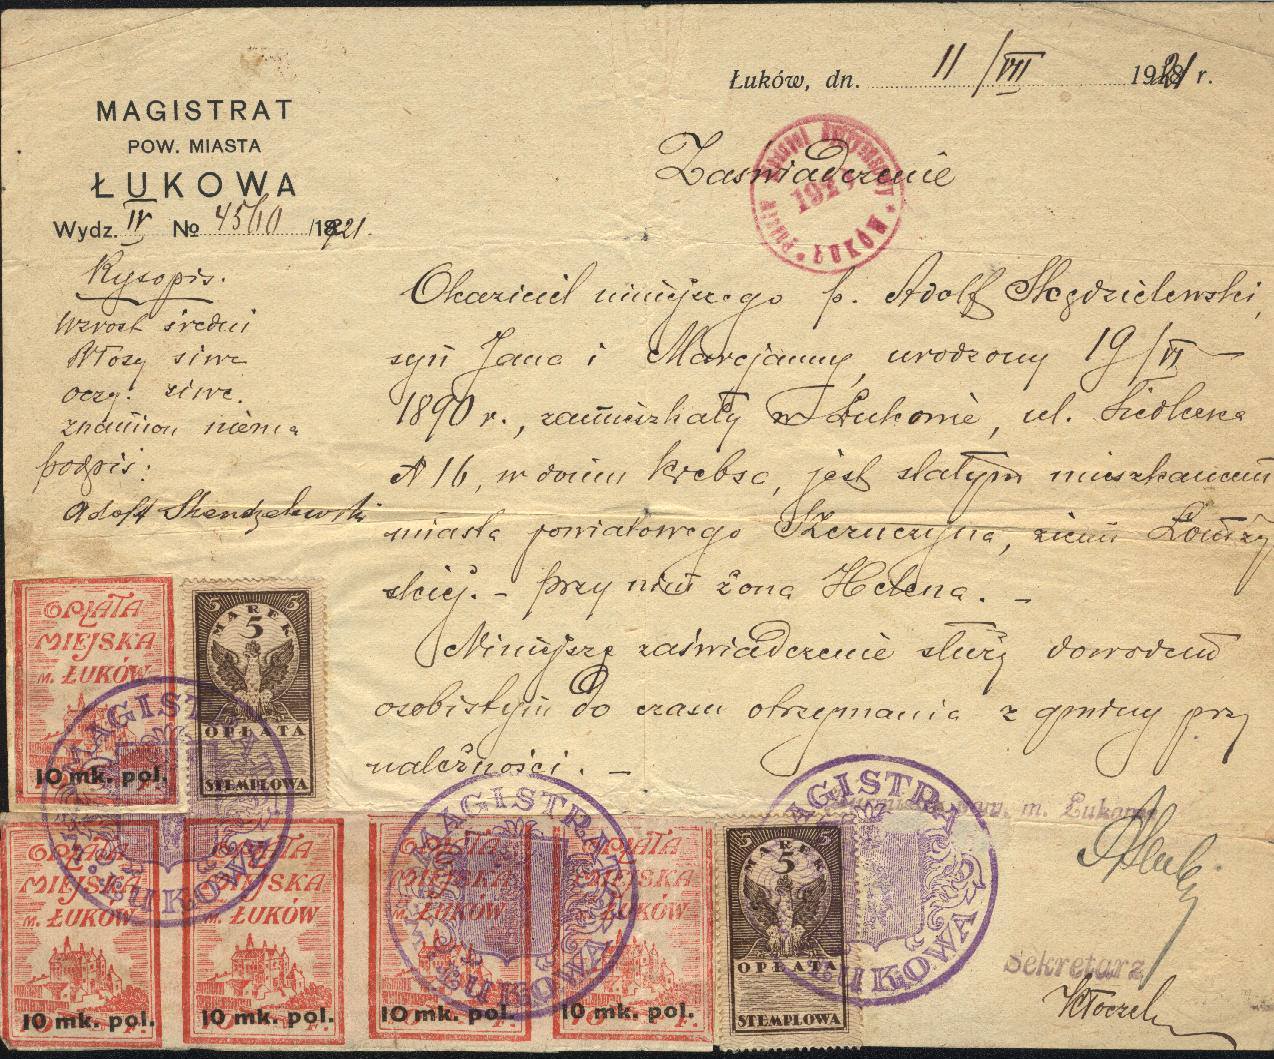 MAGISTRAT
POW. MIASTA
ŁUKOWA
Wydz. IV № 4560 /1921.
Łuków, dn. 11/VII 1921 r.
Zaświadczenie
ŁUKÓW
Rysopis.
Wzrost średni
Włosy siwe
oczy: siwe.
znamion niema
podpis:
Adolf
Okaziciel niniejszego p. Adolf
syn Jana i Marcjanny, urodzony 19/VI
1890 r., zamieszkały w Łukowie, ul. Siedlecka
№ 16, w domu Krebsa, jest stałym mieszkańcem
miasta powiatowego Szczuczyna, ziemi Łomżyń
skiej. – przy nim żona Helena. –
Niniejsze zaświadczenie służy dowodem
osobistym do czasu otrzymania z gminy przy
należności. –
OPŁATA
MIEJSKA
M. ŁUKÓW
10 mk. pol.
5 MAREK 5
5
OPŁATA
STEMPLOWA
MAGISTRAT
ŁUKOWA
OPŁATA
MIEJSKA
M. ŁUKÓW
10 mk. pol.
OPŁATA
MIEJSKA
M. ŁUKÓW
10 mk. pol.
OPŁATA
MIEJSKA
M. ŁUKÓW
10 mk. pol.
MAGISTRAT
ŁUKOWA
OPŁATA
MIEJSKA
M. ŁUKÓW
10 mk. pol.
5 MAREK 5
5
OPŁATA
STEMPLOWA
MAGISTRAT
ŁUKOWA
m. Łukowa
Sekretarz